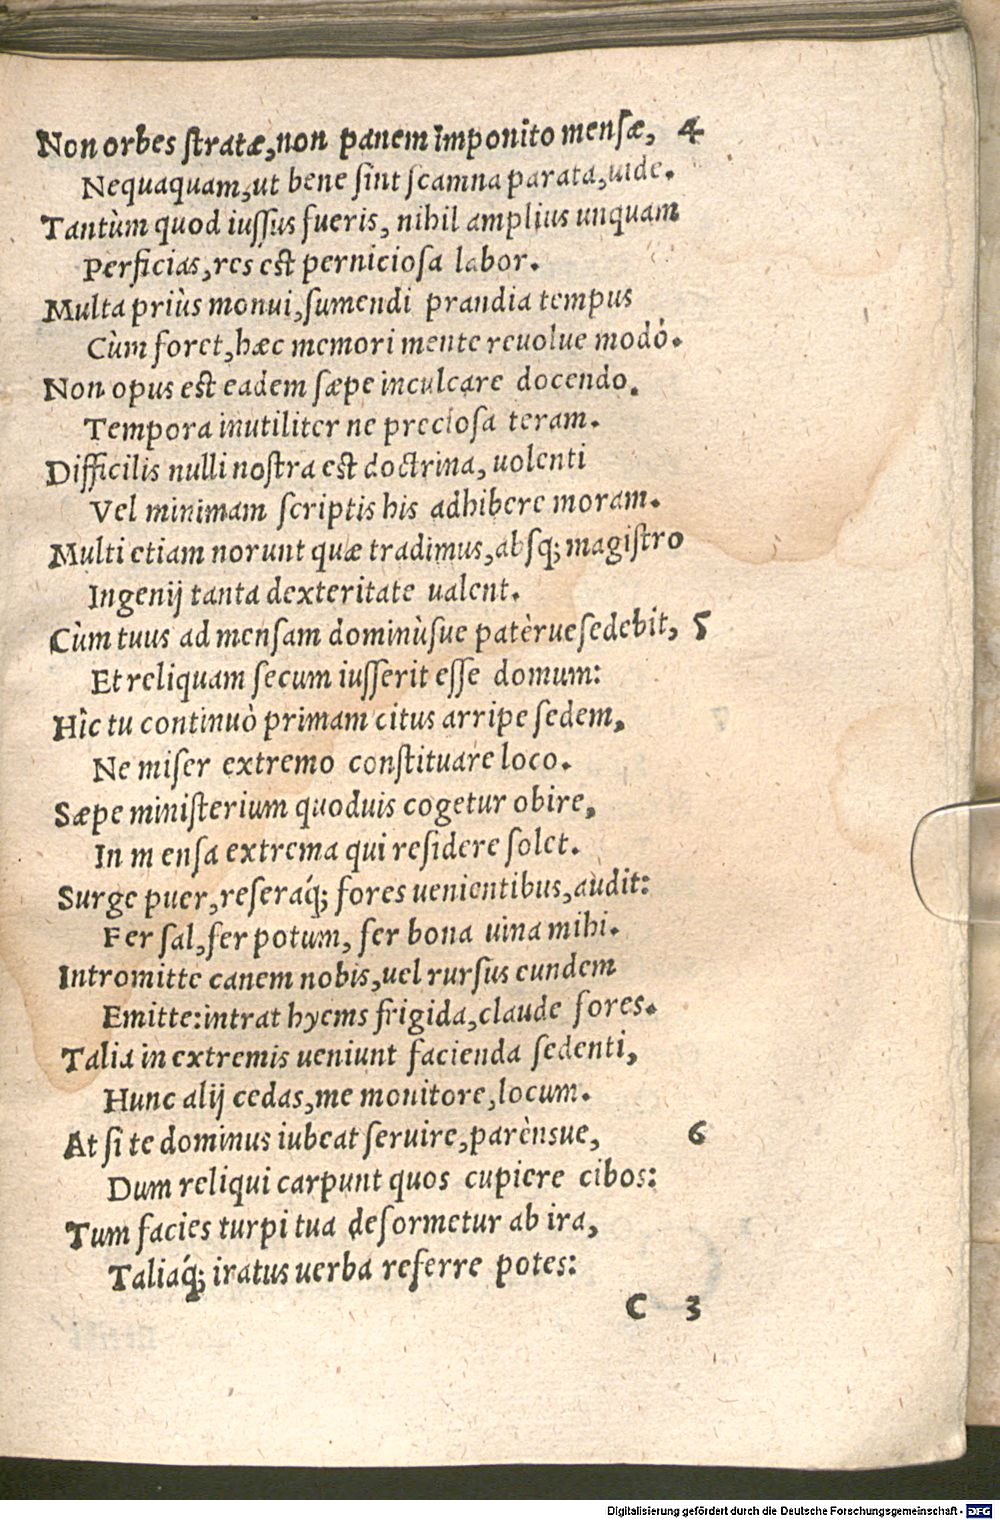 Non orbes stratæ, non panem imponito mensæ, 4
Nequaquam, ut bene sint scamna parata, uide.
Tantùm quod iussus fueris, nihil amplius unquam
Perficias, res est perniciosa labor.
Multa priùs monui, sumendi prandia tempus
Cùm foret, hæc memori mente reuolue modò.
Non opus est eadem sæpe inculcare docendo.
Tempora inutiliter ne preciosa teram.
Difficilis nulli nostra est doctrina, uolenti
Vel minimam scriptis his adhibere moram.
Multi etiam norunt quæ tradimus, absq; magistro
Ingenij tanta dexteritate ualent.
Cùm tuus ad mensam dominùsue patèrue sedebit, 5
Et reliquam secum iusserit esse domum:
Hîc tu continuò primam citus arripe sedem,
Ne miser extremo constituare loco.
Sæpe ministerium quoduis cogetur obire,
In mensa extrema qui residere solet.
Surge puer, reseraq́; fores uenientibus, audit:
Fer sal, fer potum, fer bona uina mihi.
Intromitte canem nobis, uel rursus eundem
Emitte: intrat hyems frigida, claude fores.
Talia in extremis ueniunt facienda sedenti,
Hunc alij cedas, me monitore, locum.
At si te dominus iubeat seruire, parènsue, 6
Dum reliqui carpunt quos cupiere cibos:
Tum facies turpi tua deformetur ab ira,
Taliaq́; iratus uerba referre potes:
C 3
Digitalisierung gefördert durch die Deutsche Forschungsgemeinschaft - DFG